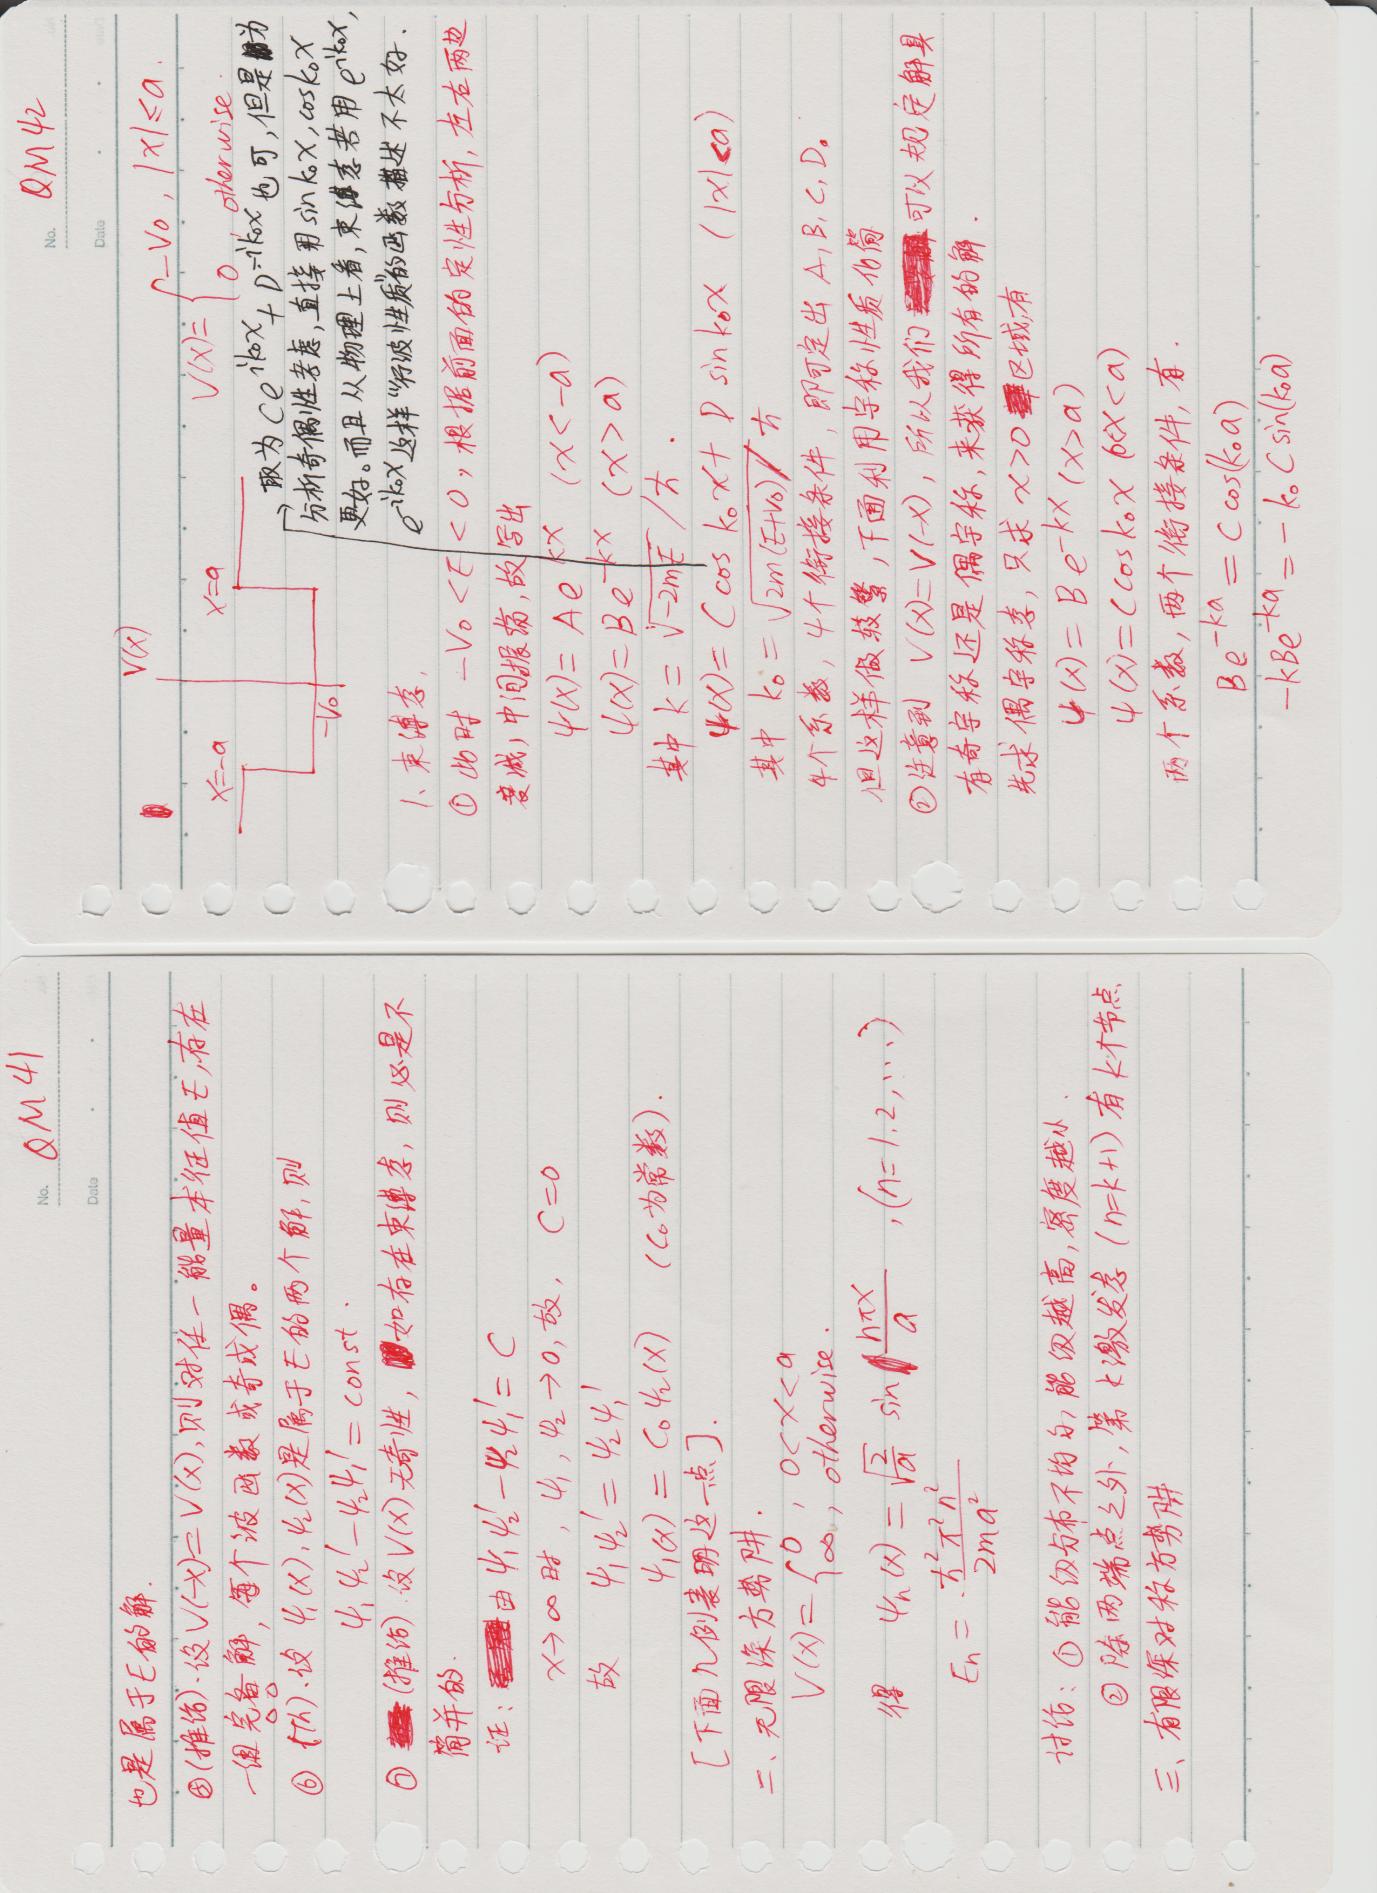 No. QM41
Date
也是属于E的解.
⑤(推论).设V(-x)=V(x),则对任一能量本征值E,存在
一组完备解,每个波函数或奇或偶。
⑥ (Th).设 ψ₁(x),ψ₂(x)是属于E的两个解,则
ψ₁ψ₂′-ψ₂ψ₁′=const.
⑦ (推论).设V(x)无奇性,如存在束缚态,则必是不
简并的.
证: 由ψ₁ψ₂′-ψ₂ψ₁′=C
x→∞时,ψ₁,ψ₂→0,故, C=0
故 ψ₁ψ₂′=ψ₂ψ₁′
ψ₁(x)=C₀ψ₂(x) (C₀为常数).
[下面几例表明这一点].
二、无限深方势阱.
V(x)={0, 0<x<a
∞, otherwise.
得 ψn(x)=√(2/a) sin nπx/a ,(n=1.2,…)
En=ħ²π²n²/2ma²
讨论:①能级分布不均匀,能级越高,密度越小.
②除两端点之外,第k激发态(n=k+1)有k个节点
三、有限深对称方势阱
No. QM42
Date
V(x)
x=-a x=a
-V₀
V(x)={-V₀, |x|≤a.
0, otherwise.
→取为Ce^{ik₀x}+D^{-ik₀x}也可,但是为
分析奇偶性考虑,直接用sin k₀x,cos k₀x
更好。而且从物理上看,束缚态若用e^{ik₀x},
e^{-ik₀x}这样“行波性质”的函数描述不太好.
1、束缚态,
①此时 -V₀<E<0,根据前面的定性分析,左右两边
衰减,中间振荡,故写出
ψ(x)=Ae^{kx} (x<-a)
ψ(x)=Be^{-kx} (x>a)
其中 k=√-2mE/ħ.
ψ(x)=C cos k₀x+D sin k₀x (|x|<a)
其中 k₀=√2m(E+V₀)/ħ
4个系数,4个衔接条件,即可定出A,B,C,D。
但这样做较繁,下面利用宇称性质化简
②注意到 V(x)=V(-x),所以我们可以规定解具
有奇宇称还是偶宇称,来获得所有的解.
先求偶宇称态,只求x>0区域,有
ψ(x)=Be^{-kx} (x>a)
ψ(x)=C cos k₀x (0<x<a)
两个系数,两个衔接条件,有.
Be^{-ka}=C cos(k₀a)
-kBe^{-ka}=-k₀C sin(k₀a)